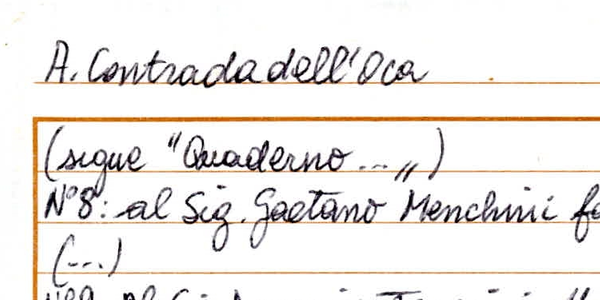 A. Contrada dell'Oca
(segue "Quaderno...„)
N°8: al Sig. Gaetano Menchini
(...)